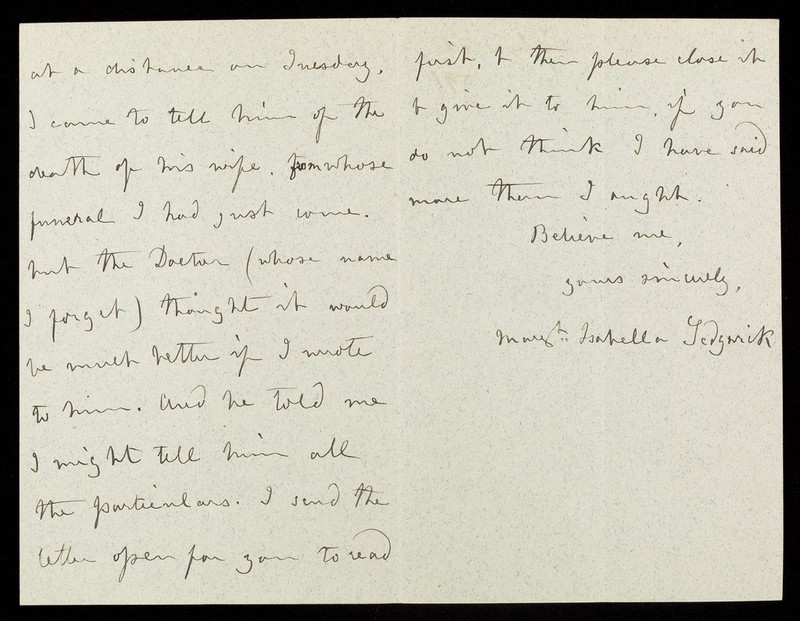 at a distance on Tuesday.
I came to tell him of the
death of his wife. from whose
funeral I had just come.
but the Doctor (whose name
I forget) thought it would
be much better if I wrote
to him. And he told me
I might tell him all
the particulars. I send the
letter open for you to read
first, & then please close it
& give it to him, if you
do not think I have said
more than I ought.
Believe me,
yours sincerely,
Margt. Isabella Sedgwick